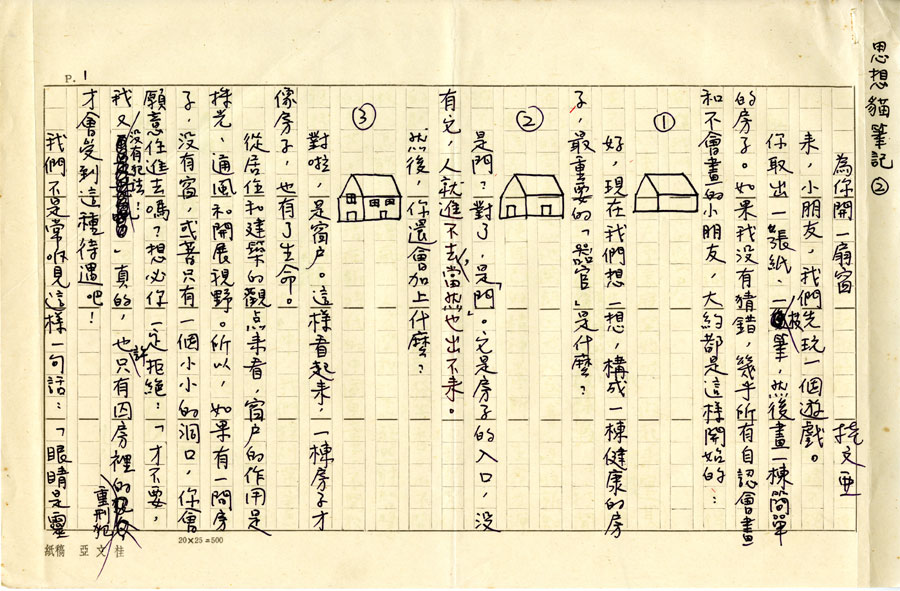 思想貓筆記②
P. 1
為你開一扇窗 桂文亞
來，小朋友，我們先玩一個遊戲。
你取出一張紙、一枝筆，然後畫一棟簡單
的房子。如果我沒有猜錯，幾乎所有自認會畫
和不會畫的小朋友，大約都是這樣開始的：
①
好，現在我們想一想，構成一棟健康的房
子，最重要的「器官」是什麼？
②
是門？對了，是「門」。它是房子的入口，沒
有它，人就進不去，當然也出不來。
然後，你還會加上什麼？
③
對啦，是窗户。這樣看起來，一棟房子才
像房子，也有了生命。
從居住和建築的觀点來看，窗户的作用是
採光、通風和開展視野。所以，如果有一間房
子，沒有窗，或者只有一個小小的洞口，你會
願意住進去嗎？想必你一定拒絕：「才不要，
我又沒有犯法！」真的，也許只有囚房裡的重刑犯
才會受到這種待遇吧！
我們不是常听見這樣一句話：「眼睛是靈
20×25=500
桂文亞稿紙